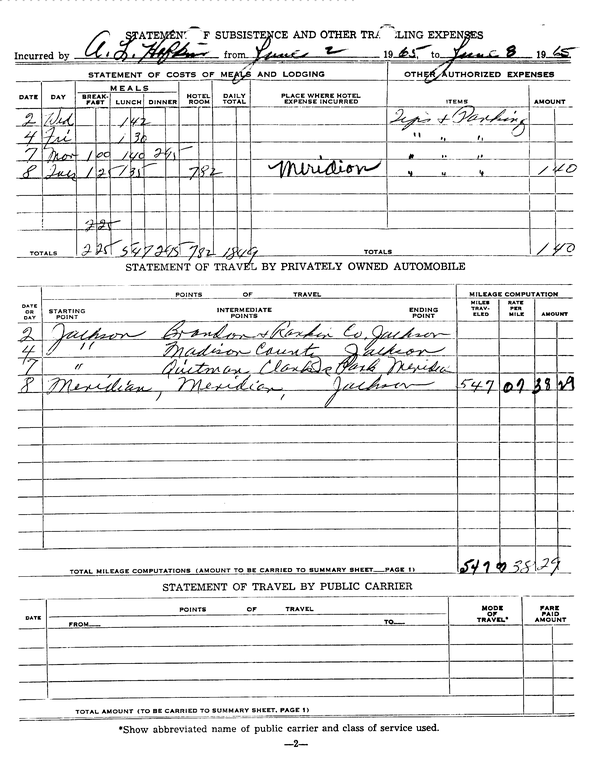 STATEMENT OF SUBSISTENCE AND OTHER TRAVELLING EXPENSES
Incurred by A. L. Hopkins from June 2 1965, to June 8 1965
STATEMENT OF COSTS OF MEALS AND LODGING OTHER AUTHORIZED EXPENSES
DATE DAY MEALS BREAK-FAST LUNCH DINNER HOTEL ROOM DAILY TOTAL PLACE WHERE HOTEL EXPENSE INCURRED ITEMS AMOUNT
2 Wed 142 Tips & Parking
4 Fri 130 " " "
7 Mon 100 140 295 " " "
8 Tues 125 135 782 Meridian " " " 140
225
TOTALS 225 547 295 782 1849 TOTALS 140
STATEMENT OF TRAVEL BY PRIVATELY OWNED AUTOMOBILE
DATE OR DAY POINTS OF TRAVEL MILEAGE COMPUTATION
STARTING POINT INTERMEDIATE POINTS ENDING POINT MILES TRAV-ELED RATE PER MILE AMOUNT
2 Jackson Brandon & Rankin Co. Jackson
4 " Madison County Jackson
7 " Quitman, Clarke Meridian
8 Meridian, Meridian, Jackson 547 07 38 29
TOTAL MILEAGE COMPUTATIONS (AMOUNT TO BE CARRIED TO SUMMARY SHEET__PAGE 1) 547 38.29
STATEMENT OF TRAVEL BY PUBLIC CARRIER
DATE POINTS OF TRAVEL MODE OF TRAVEL* FARE PAID AMOUNT
FROM__ TO__
TOTAL AMOUNT (TO BE CARRIED TO SUMMARY SHEET, PAGE 1)
*Show abbreviated name of public carrier and class of service used.
—2—